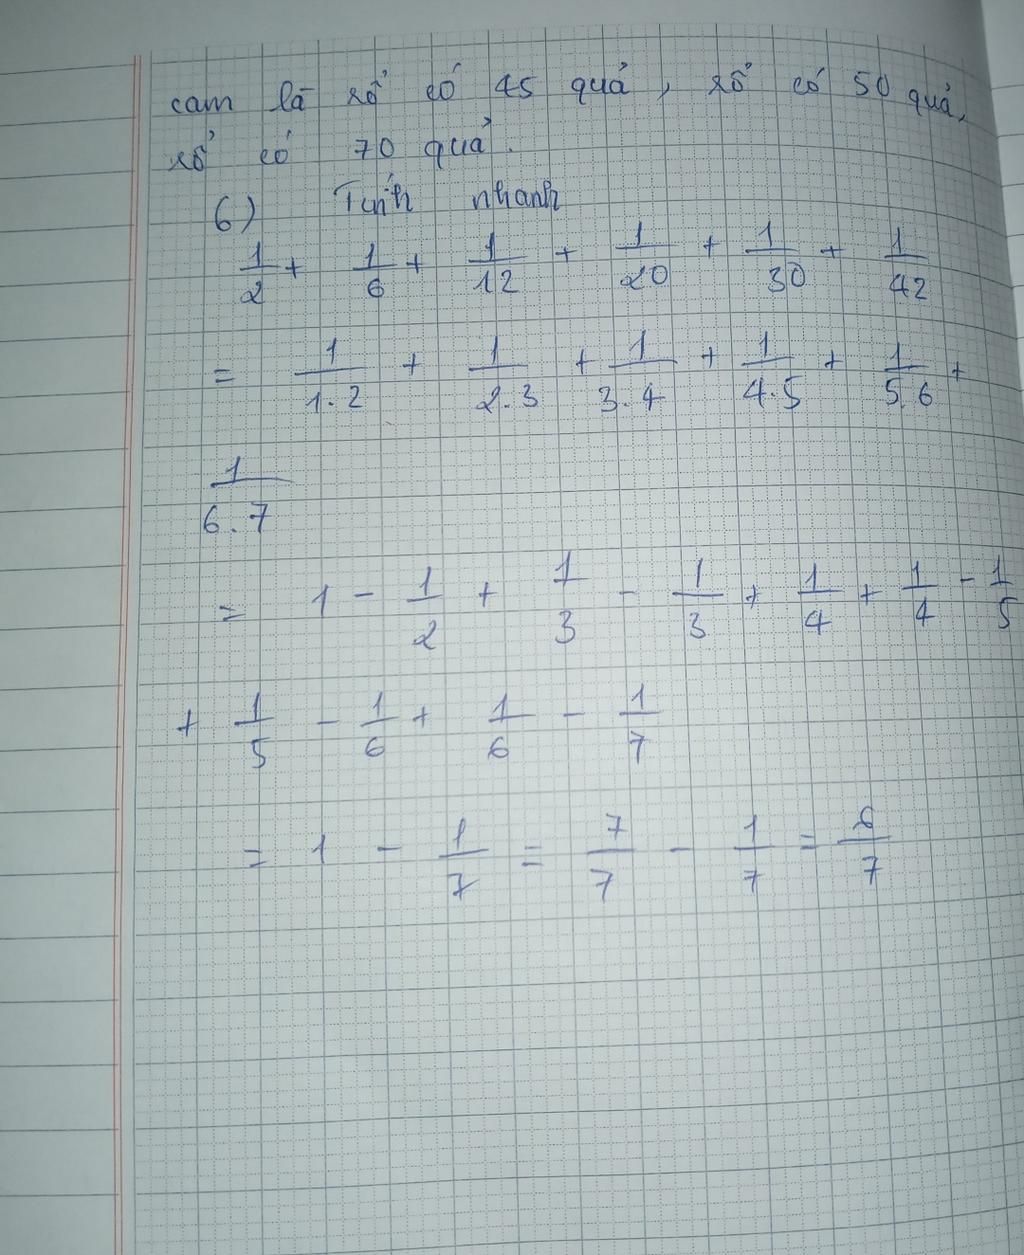 cam là rổ có 45 quả, rổ có 50 quả,
rổ có 70 quả.
6) Tính nhanh
1/2 + 1/6 + 1/12 + 1/20 + 1/30 + 1/42
= 1/1.2 + 1/2.3 + 1/3.4 + 1/4.5 + 1/5.6 +
1/6.7
= 1 - 1/2 + 1/3 - 1/3 + 1/4 + 1/4 - 1/5
+ 1/5 - 1/6 + 1/6 - 1/7
= 1 - 1/7 = 7/7 - 1/7 = 6/7